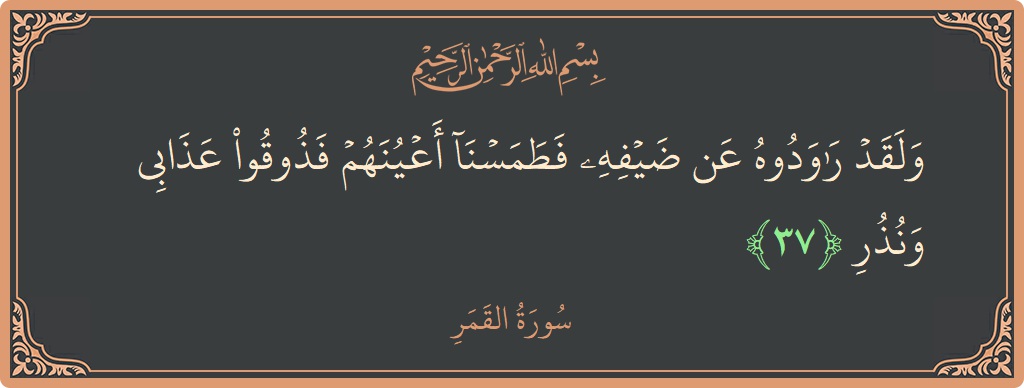 بِسْمِ اللهِ الرَّحْمٰنِ الرَّحِيْمِ
وَلَقَدۡ رَٰوَدُوهُ عَن ضَيۡفِهِۦ فَطَمَسۡنَآ أَعۡيُنَهُمۡ فَذُوقُواْ عَذَابِي
وَنُذُرِ ﴿٣٧﴾
سُورَةُ القَمَرِ